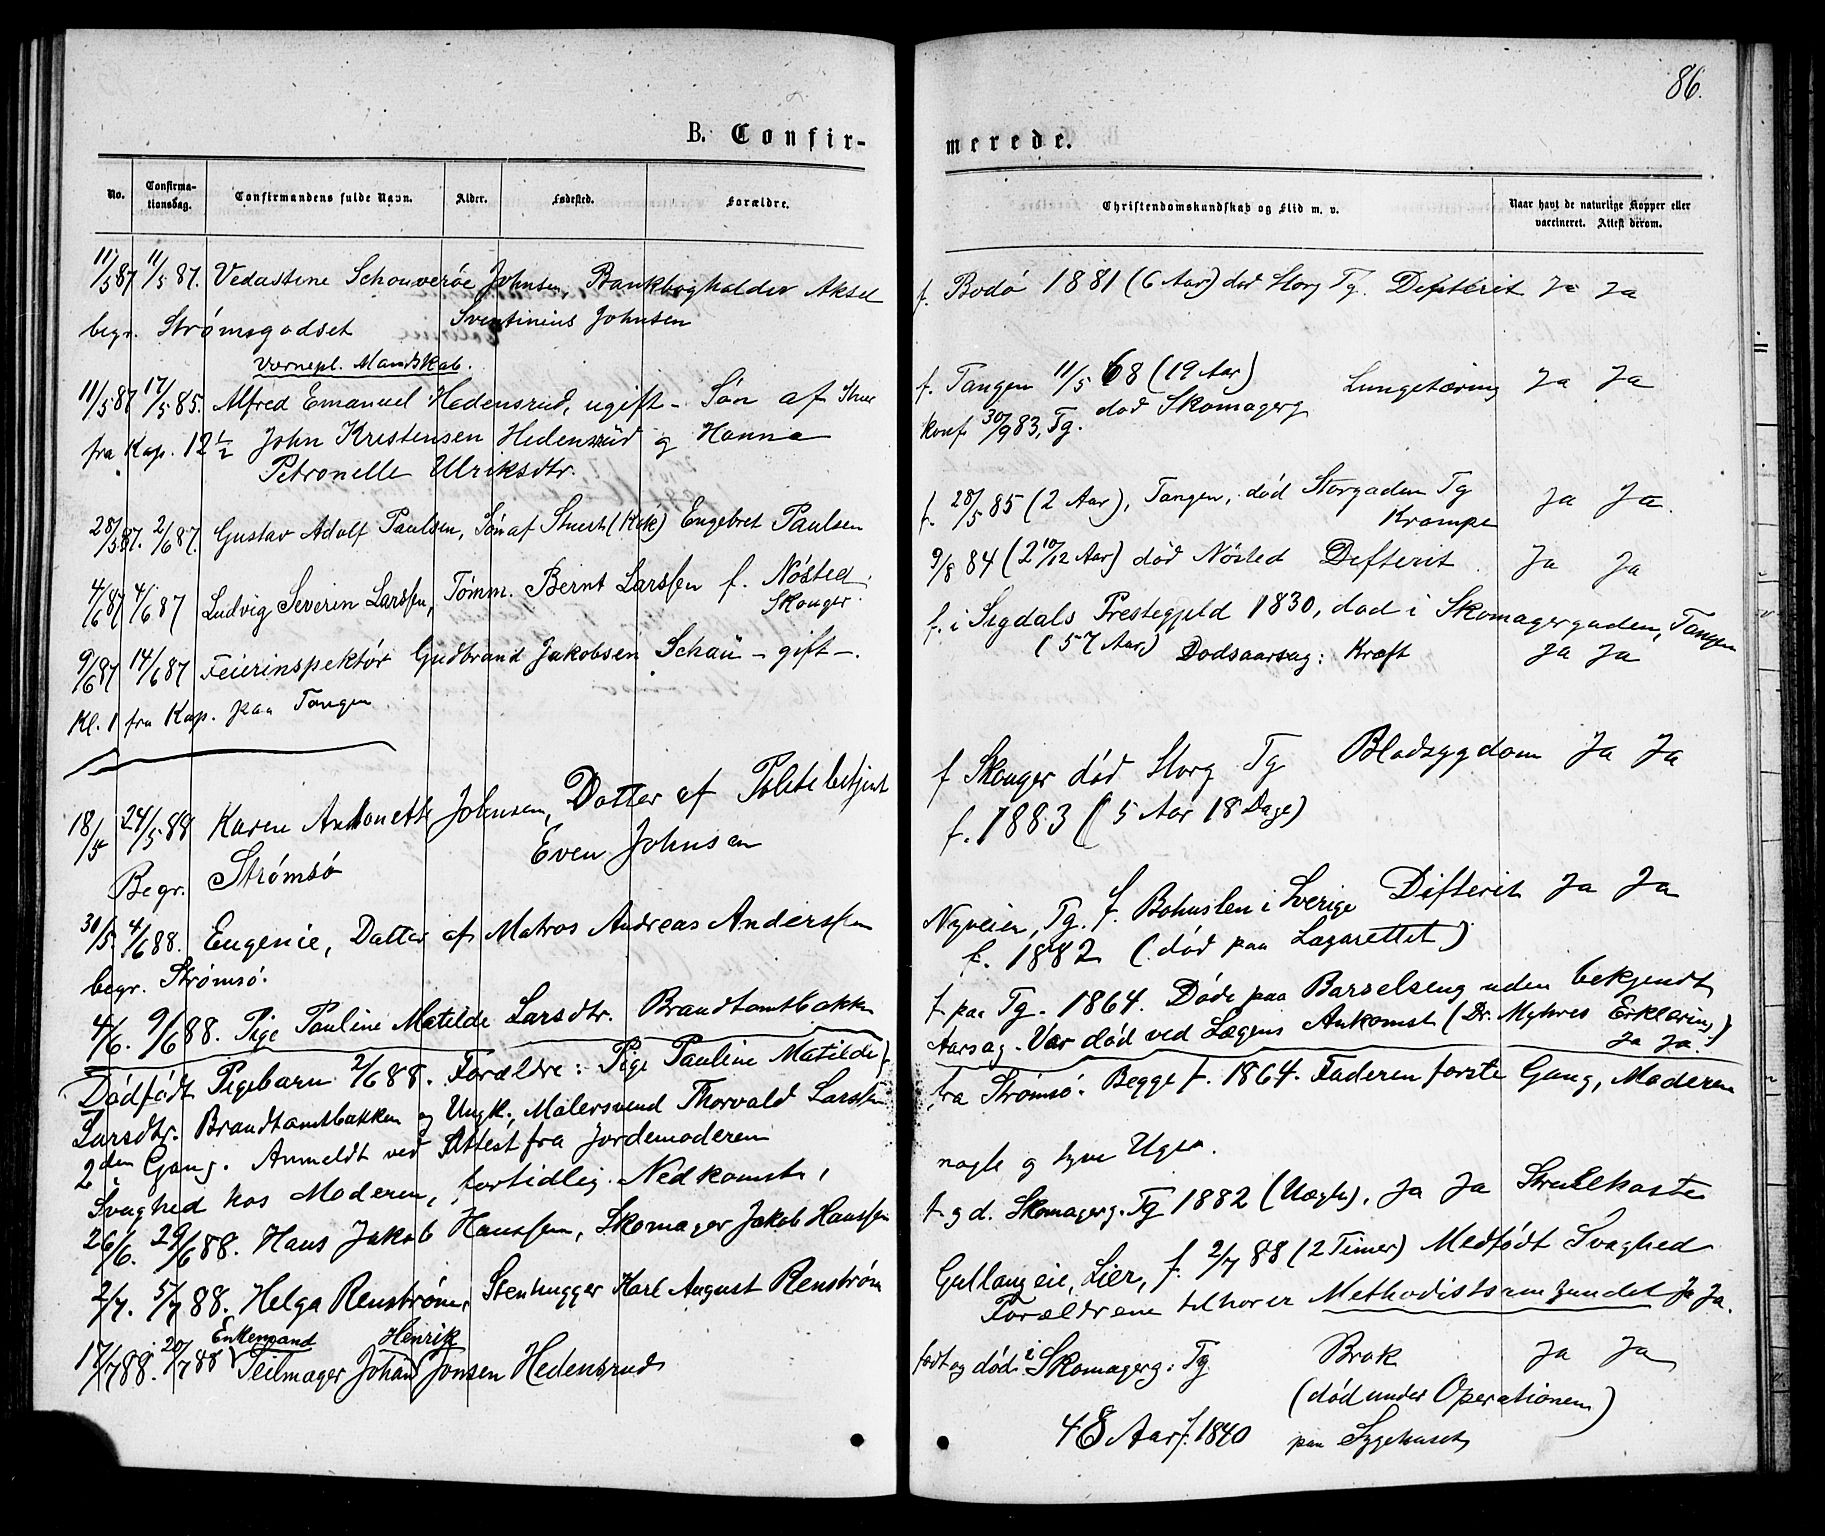 B. Confir-
No.
Confirma-
tionsdag.
Confirmandens fulde Navn.
Alder.
Fødested.
Forældre.
11/5 87 11/5 87. Vedastine Schouverøe Johnsen, Bankbogholder Aksel
begr. Strømsgodset Sventinius Johnsen
Vernepl. Mandskab.
11/5 87 17/5 85. Alfred Emanuel Hedensrud, ugift - Søn af
fra Kap. 12 1/2 John Kristensen Hedensrud og Hanna
Petronelle Ulriksdtr.
28/5 87. 2/6 87. Gustav Adolf Paulsen, Søn af Stuert (Kok) Engebret Paulsen
4/6 87 4/6 87 Ludvig Severin Larssen, Tømm. Bernt Larssen f. Nøsted
Skoger.
9/6 87 14/6 87 Feierinspektør Gudbrand Jakobsen Schau - gift -.
Kl. 1 fra Kap. paa Tangen
18/5 24/5 88 Karen Antonette Johnsen, Datter af Politibetjent
Even Johnsen
Begr. Strømsø
30/5. 4/6 88. Eugenie, Datter af Matros Andreas Anderssen
begr. Strømsø.
4/6. 9/6 88. Pige Pauline Matilde Larsdtr. Brandtomtbakken
Dødfødt Pigebarn 2/6 88. Forældre: Pige Pauline Matilde
Larsdtr. Brandtomtbakken og Ungk. Malersvend Thorvald Larssen
2den Gang. Anmeldt ved Attest fra Jordemoderen
Svaghed hos Moderen, fortidlig Nedkomst,
26/6. 29/6 88. Hans Jakob Hanssen, Skomager Jakob Hanssen
2/7. 5/7 88. Helga Renstrøm, Stenhugger Karl August Renstrøm
Enkemand Henrik
17/7 88. 20/7 88 Seilmager Johan Jonsen Hedensrud
86.
merede.
Christendomskundskab og Flid m. v.
Naar havt de naturlige Kopper eller
vaccineret. Attest derom.
f. Bodø 1881 (6 Aar) død Storg Tg. Difterit Ja Ja
f. Tangen 11/5 68 (19 Aar) Lungetæring Ja Ja
konf. 30/9 83, Tg. død Skomagerg
f. 28/5 85 (2 Aar), Tangen, død Storgaden Tg
Krampe Ja Ja.
9/8 84 (2 10/12 Aar) død Nøsted Difterit Ja Ja
f. i Sigdals Prestegjeld 1830, død i Skomagergaden, Tangen
(57 Aar) Dødsaarsag: Kræft Ja Ja
f Skoger død Storg Tg Blodsygdom Ja Ja
f. 1883 (5 Aar 18 Dage)
Nyveien, Tg. f. Bohuslen i Sverige Difterit Ja Ja
f. 1882 (død paa Lazarettet)
f paa Tg. 1864. Døde paa Barselseng uden bekjendt
Aarsag. Var død ved Lægens Ankomst (Dr. Myhres Erklæring)
Ja Ja.
fra Strømsø. Begge f. 1864. Faderen første Gang, Moderen
nogle og tyve Uger.
f. g d. Skomagerg. Tg 1882 (Uægte), Ja Ja Strubehoste
Gullaugeie, Lier, f. 2/7 88 (2 Timer) Medfødt Svaghed
Forældrene tilhører Methodistsamfundet Ja Ja.
født og død i Skomagerg. Tg Brok Ja Ja
(død under Operationen)
48 Aar f. 1840 paa Sygehuset